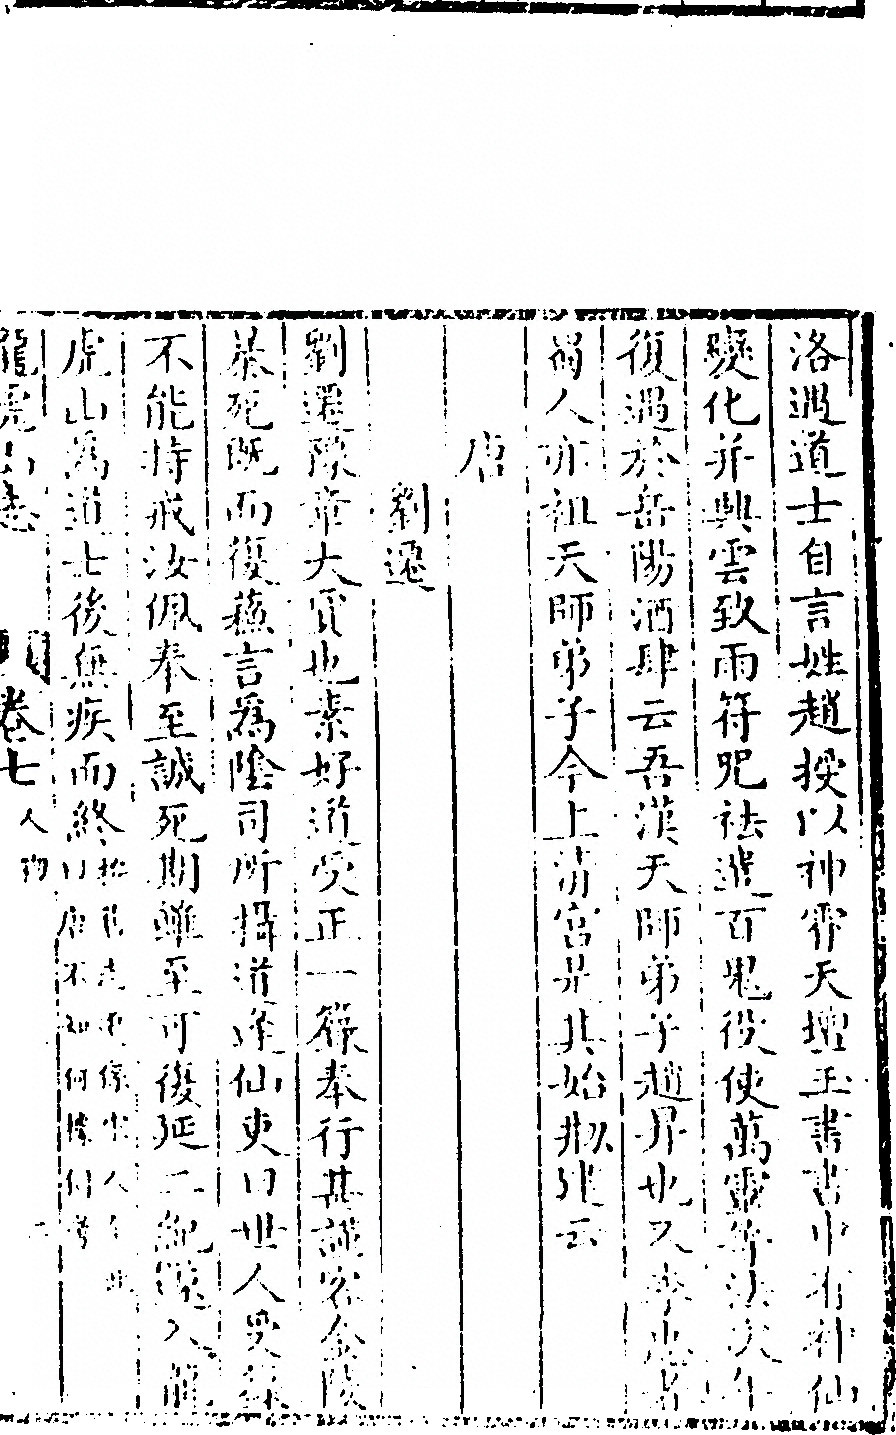 洛遇道士自言姓趙授以神霄天壇玉書書中有神仙
變化并興雲致雨符咒祛遣百鬼役使萬靈等法次年
復遇於岳陽酒肆云吾漢天師弟子趙昇也又李忠者
蜀人亦祖天師弟子今上清宮是其始剏建云
唐
劉遷
劉遷豫章大賈也素好道受正一籙奉行甚謹客金陵
暴死既而復蘇言為陰司所攝道逢仙吏曰世人受籙
不能持戒汝佩奉至誠死期雖至可復延二紀遂入龍
虎山為道士後無疾而終
按舊志係宋人今
曰唐不知何據俟考
龍虎山志
卷七
人物
二